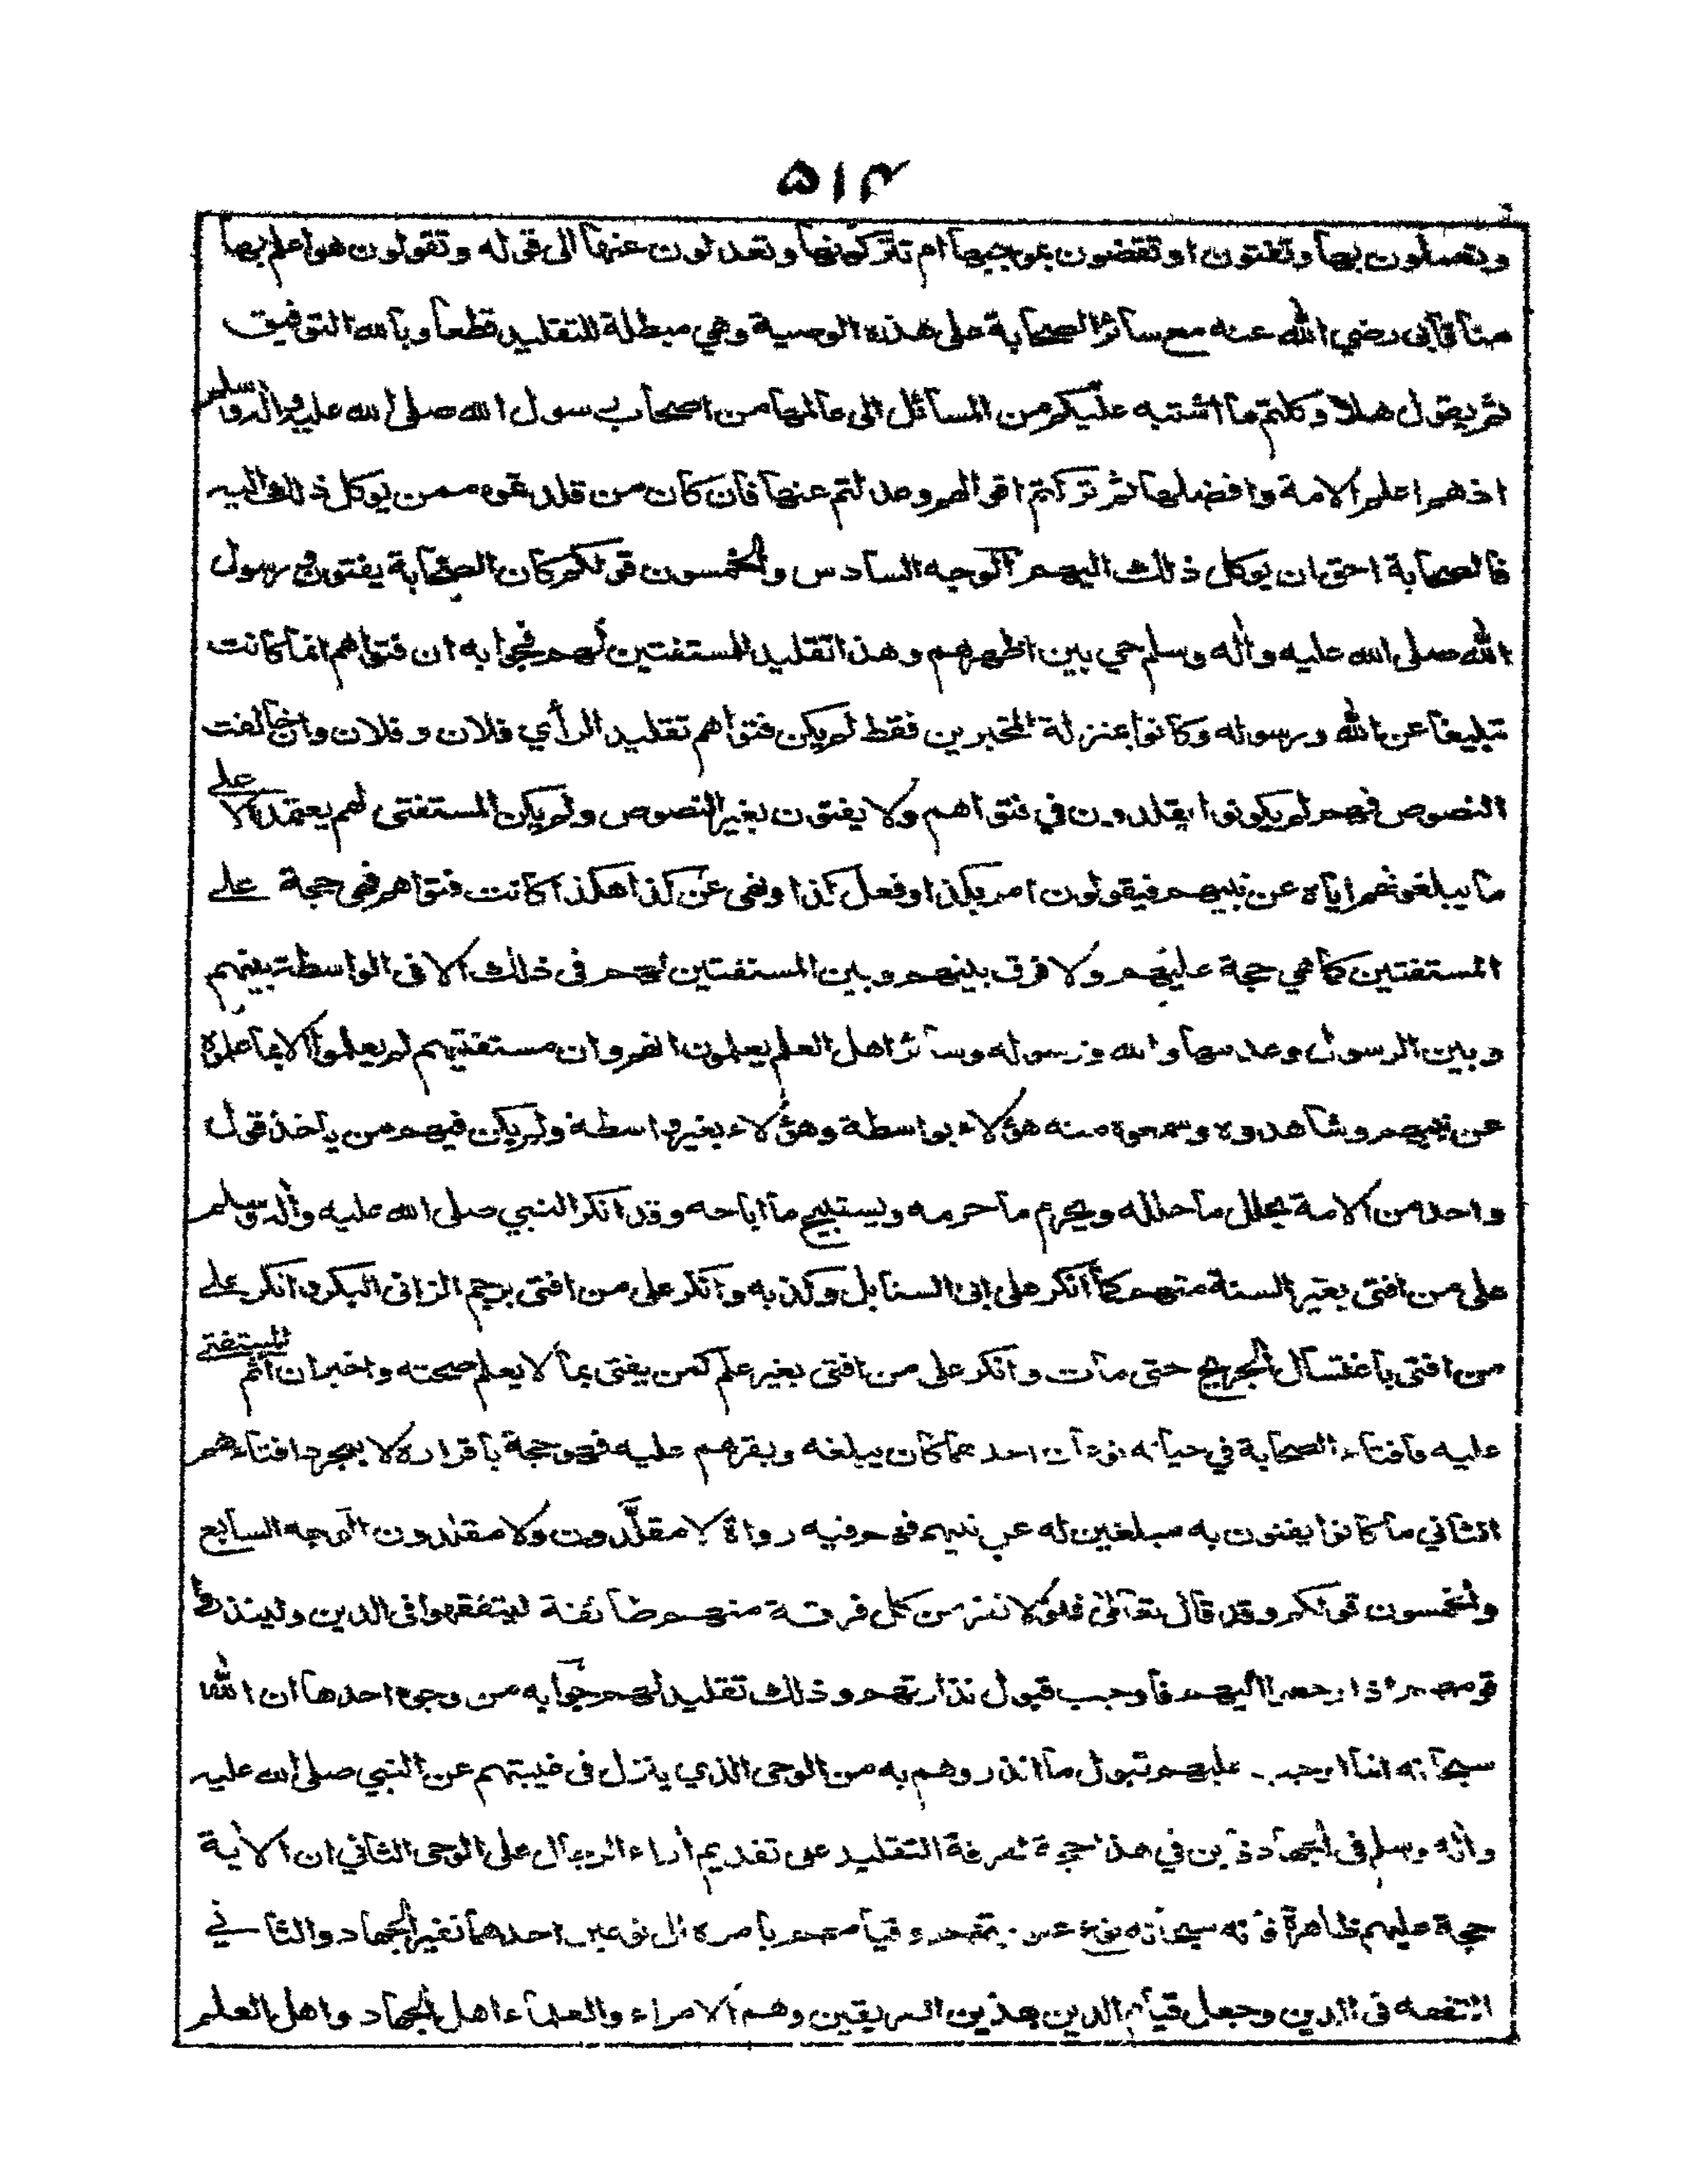 ۵۱۴
وتعملون بها وتفتون او تقضون بموجبها ام تتركونها وتعدلون عنها الى قوله وتقولون هو اعلم بها
منا فابى رضي الله عنه مع سائر الصحابة على هذه الوصية وهي مبطلة للتقليد قطعا وبالله التوفيق
ثم يقول هلا وكلتم ما اشتبه عليكم من المسائل الى عالمها من اصحاب رسول الله صلى الله عليه وآله وسلم
اذ هم اعلم الامة وافضلها ثم تركتم اقوالهم وعدلتم عنها فان كان من قلدتموه ممن يوكل ذلك اليه
فالصحابة احق ان يوكل ذلك اليهم الوجه السادس والخمسون قولكم كان الصحابة يفتون ورسول
الله صلى الله عليه وآله وسلم حي بين اظهرهم وهذا تقليد المستفتين لهم فجوابه ان فتواهم انما كانت
تبليغا عن الله ورسوله وكانوا بمنزلة المخبرين فقط لم يكن فتواهم تقليد الرأي فلان وفلان وان خالفت
النصوص فهم لم يكونوا يقلدون في فتواهم ولا يفتون بغير النصوص ولم يكن المستفتى لهم يعتمد الا على
ما يبلغونهم اياه عن نبيهم فيقولون امر بكذا وفعل كذا ونهى عن كذا هكذا كانت فتواهم فهي حجة على
المستفتين كما هي حجة عليهم ولا فرق بينهم وبين المستفتين لهم في ذلك الا في الواسطة بينهم
وبين الرسول وعدمها والله ورسوله وسائر اهل العلم يعلمون انهم وان مستفتيهم لم يعلموا الا بما علموه
عن نبيهم وشاهدوه وسمعوه منه هؤلاء بواسطة وهؤلاء بغير واسطة ولم يكن فيهم من يأخذ قول
واحد من الامة يحلل ما حلله ويحرم ما حرمه ويستبيح ما اباحه وقد انكر النبي صلى الله عليه وآله وسلم
على من افتى بغير السنة منهم كما انكر على ابى السنابل وكذبه وانكر على من افتى برجم الزانى البكر وانكر على
من افتى باغتسال الجريح حتى مات وانكر على من افتى بغير علم كمن يفتى بما لا يعلم صحته واخبر ان اثم المستفتى
عليه فافتاء الصحابة في حياته نوعان احدهما كان يبلغه ويقرهم عليه فهو حجة باقراره لا بمجرد افتاءهم
الثاني ما كانوا يفتون به مبلغين له عن نبيهم فهم فيه رواة لا مقلّدون ولا مقلدون الوجه السابع
والخمسون قولكم وقد قال تعالى فلولا نفر من كل فرقة منهم طائفة ليتفقهوا فى الدين ولينذروا
قومهم اذا رجعوا اليهم فاوجب قبول نذارتهم وذلك تقليد لهم جوابه من وجوه احدها ان الله
سبحانه انما اوجب عليهم قبول ما انذروهم به من الوحى الذي ينزل فى غيبتهم عن النبي صلى الله عليه
وآله وسلم فى الجهاد فاين في هذا حجة لفرقة التقليد على تقديم آراء الرجال على الوحى الثاني ان الآية
حجة عليهم ظاهرة فانه سبحانه نوع عبوديتهم وقيامهم بامره الى نوعين احدهما نفير الجهاد والثاني
التفقه فى الدين وجعل قيام الدين بهذين الفريقين وهم الامراء والعلماء اهل الجهاد واهل العلم